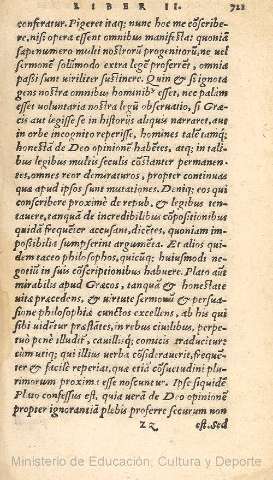 LIBER II. 721
conferatur. Pigeret itaq; nunc hoc me cõscribe-
re, nisi opera essent omnibus manifesta: quoniã
sæpe numero multi nostrorũ progenitorũ, ne vel
sermonẽ solũmodo extra legẽ proferrẽt, omnia
passi sunt viriliter sustinere. Quin & si ignota
gens nostra omnibus hominibꝰ esset, nec palàm
esset voluntaria nostra legũ obseruatio, si Græ-
cis aut legisse se in historijs aliquis narraret, aut
in orbe incognito reperisse, homines talẽ tamq́;
honestã de Deo opinionẽ habẽtes, atq; in tali-
bus legibus multis seculis cõstanter permanen-
tes, omnes reor demiraturos, propter continuas
quæ apud ipsos sunt mutationes. Deniq; eos qui
conscribere proximè de repub. & legibus ten-
tauere, tanquã de incredibilibus cõpositionibus
quidã frequẽter accusant, dicẽtes, quoniam im-
possibilia sumpserint argumẽta. Et alios qui-
dem taceo philosophos, quicũq; huiusmodi ne-
gotiũ in suis cõscriptionibus habuere. Plato aũt
mirabilis apud Græcos, tanquã & honestate
vitæ præcedens, & virtute sermonũ & persua-
sione philosophiæ cunctos excellens, ab his qui
sibi vidẽtur præstãtes, in rebus ciuilibus, perpe-
tuo penè illudit, cauillosq́; comicis traducitur:
cùm utiq; qui illius verba cõsiderauerit, frequẽ-
ter & facilè reperiat, quæ etiã cõsuetudini plu-
rimorum proximè esse noscuntur. Ipse siquidẽ
Plato confessus est, quia verã de Deo opinionẽ
propter ignorantiã plebis proferre securum non
zz est. Sed
Ministerio de Educación, Cultura y Deporte